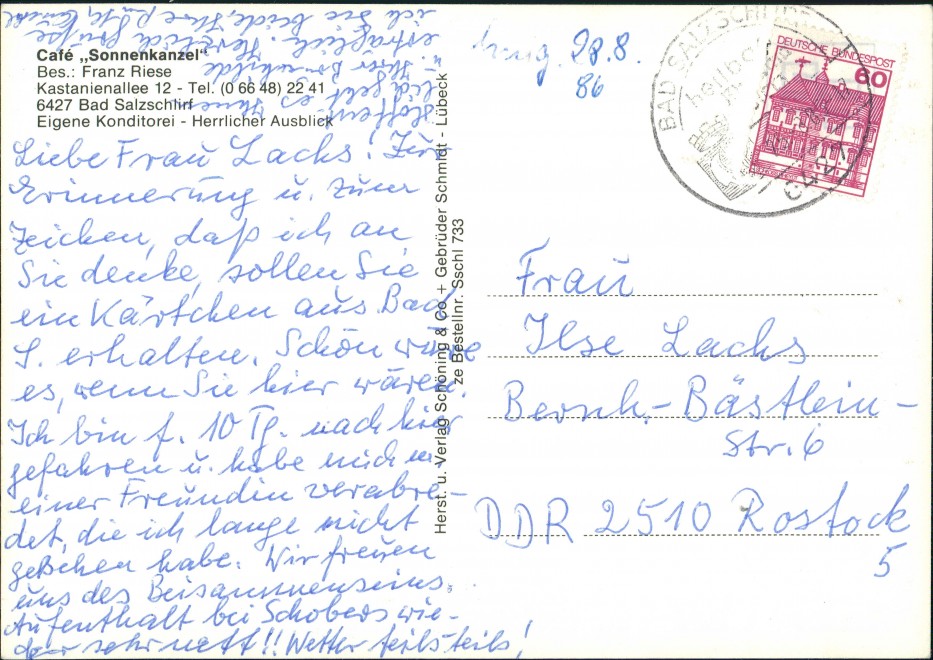 Café „Sonnenkanzel"
Bes.: Franz Riese
Kastanienallee 12 - Tel. (0 66 48) 22 41
6427 Bad Salzschlirf
Eigene Konditorei - Herrlicher Ausblick
Liebe Frau Lachs! Zur
Erinnerung u. zum
Zeichen, daß ich an
Sie denke, sollen Sie
ein Kärtchen aus Bad
S. erhalten. Schön wäre
es, wenn Sie hier wären.
Ich bin f. 10 Tg. nach hier
gefahren u. habe mich m.
einer Freundin verabre-
det, die ich lange nicht
gesehen habe. Wir freuen
uns des Beisammenseins.
Aufenthalt bei Schobers wie-
der sehr nett!! Wetter teils teils!
Hoffentl.
geht es Ihnen
u. Ihrer
erträglich. Herzliche Grüße
ich Sie beide, Ihre
Herst. u. Verlag Schöning & Co + Gebrüder Schmidt - Lübeck
ze Bestellnr. Sschl 733
28.8.
86
BAD SALZSCHLIRF
DEUTSCHE BUNDESPOST
60
Frau
Ilse Lachs
Bernh.-Bästlein-
Str. 6
DDR 2510 Rostock
5